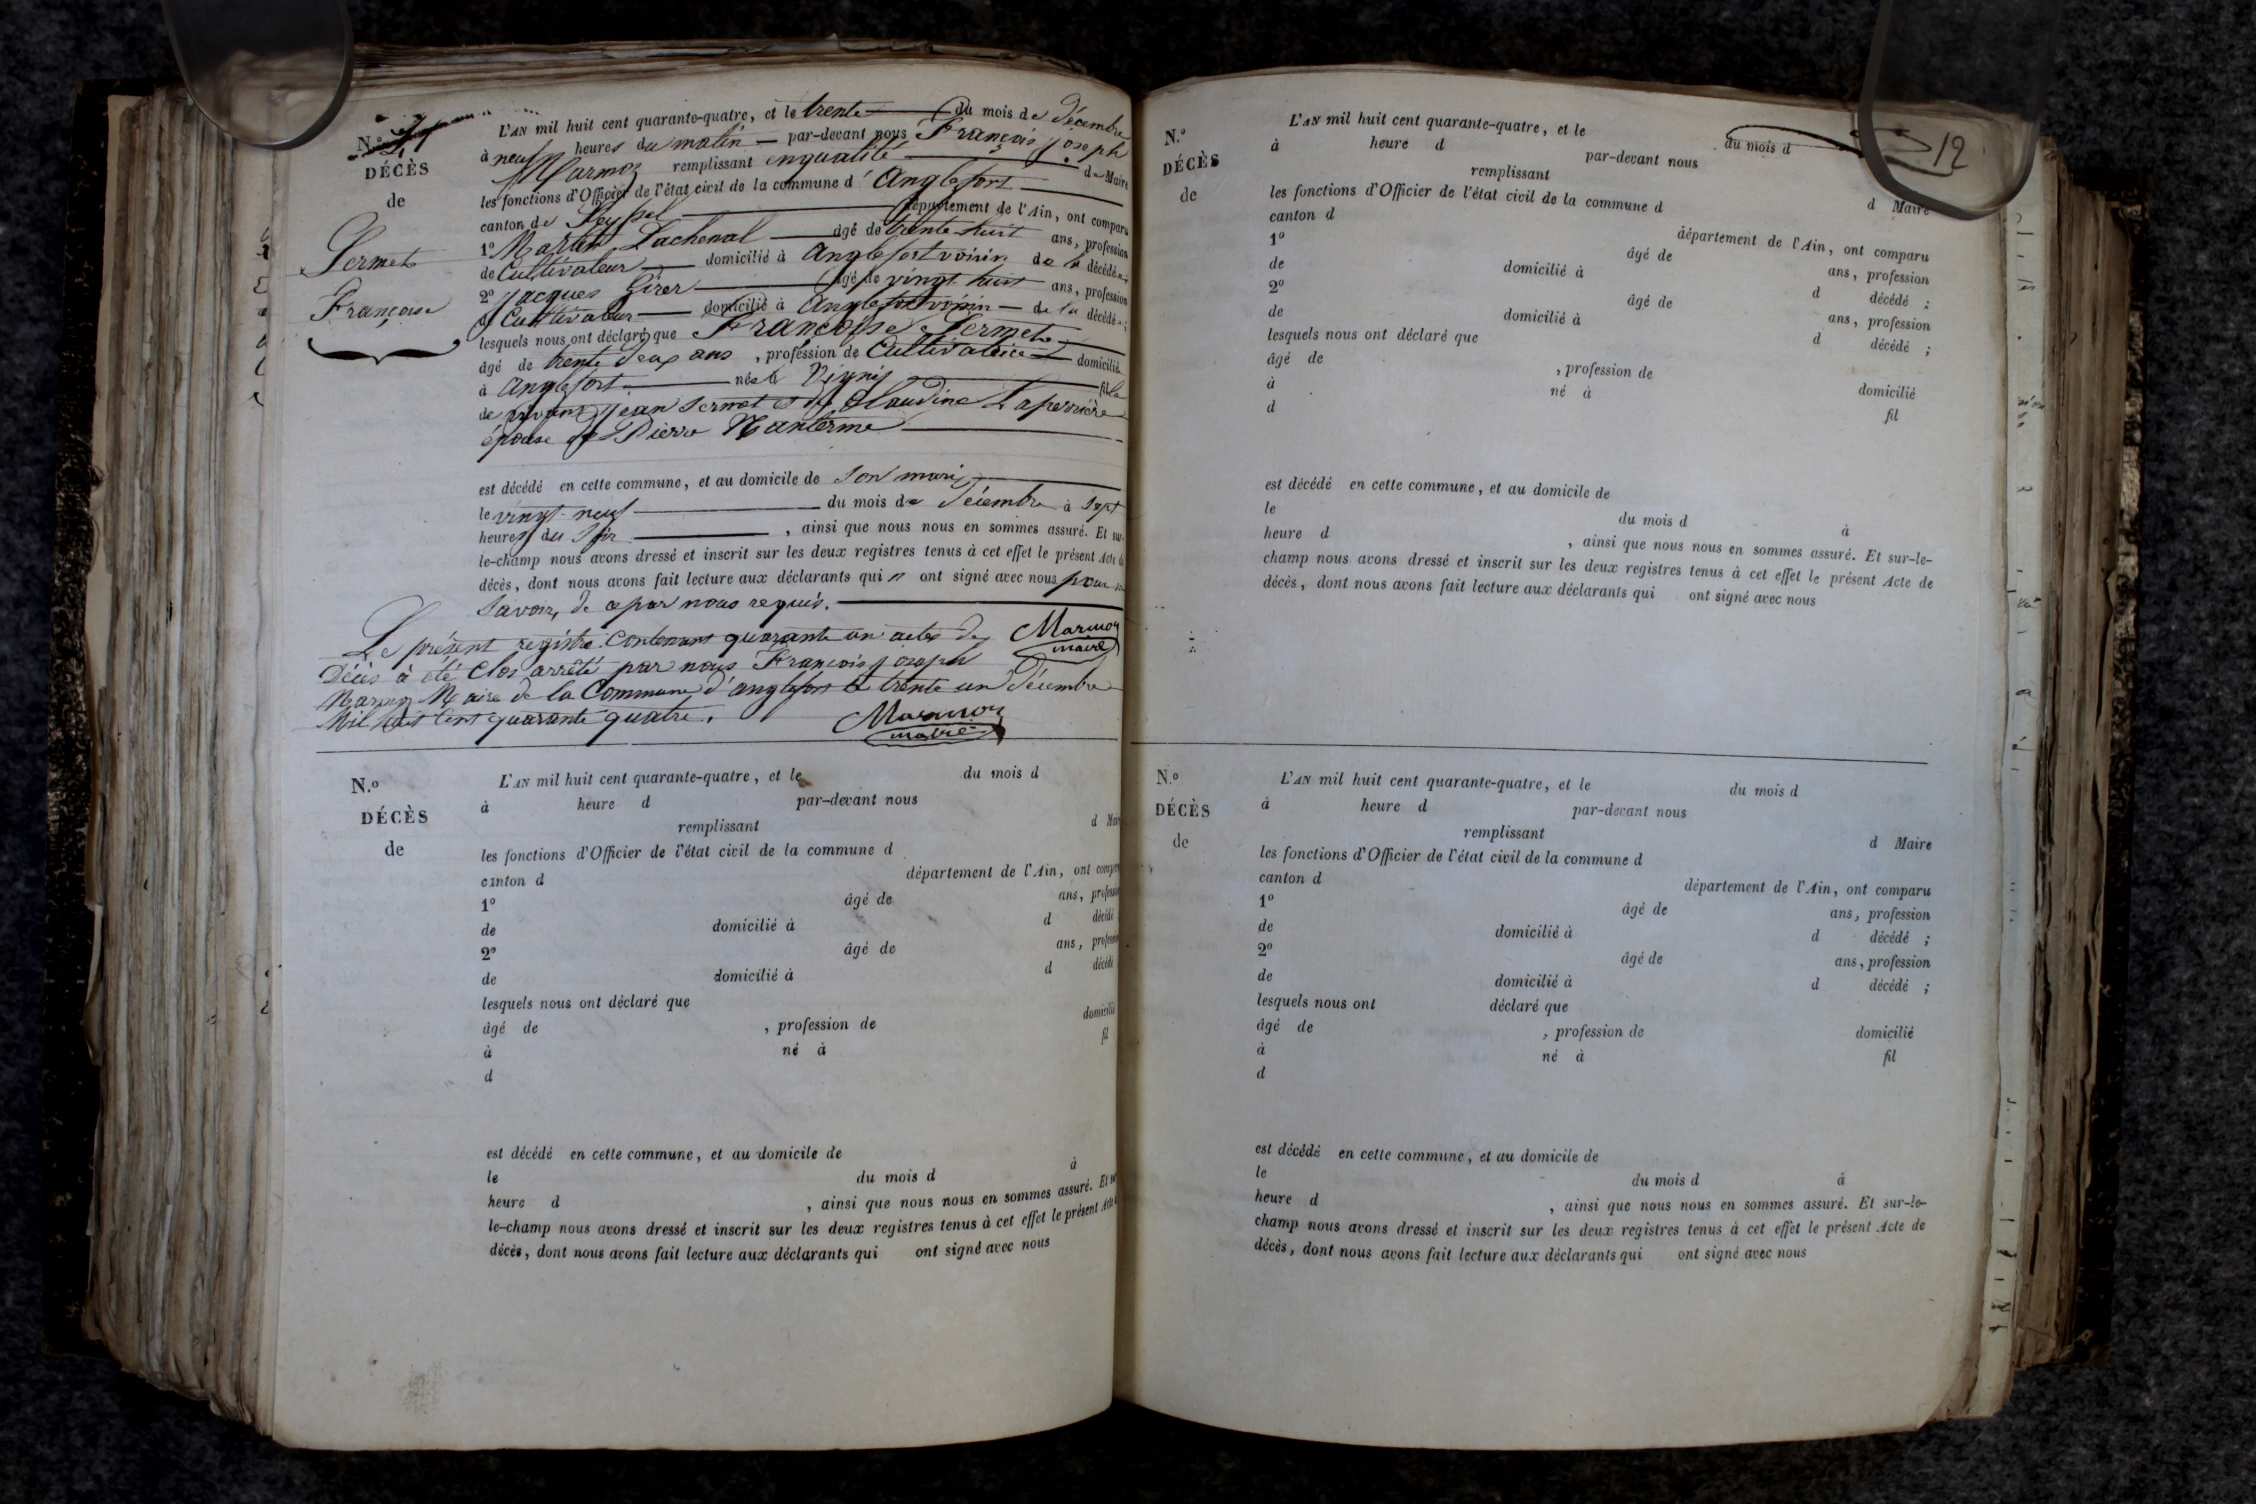 N.º 41
DÉCÈS
de
Sermet
Françoise
L'AN mil huit cent quarante-quatre, et le trente du mois de Décembre
à neuf heures du matin par-devant nous François joseph
Marmoz remplissant en qualité de Maire
les fonctions d'Officier de l'état civil de la commune d'Anglefort
canton de Seyssel département de l'Ain, ont comparu
1º Martin Lachenal âgé de trente huit ans, profession
de Cultivateur domicilié à Anglefort voisin de la décédée ;
2º Jacques Girer âgé de vingt huit ans, profession
de Cultivateur domicilié à Anglefort voisin de la décédée ;
lesquels nous ont déclaré que Françoise Sermet
âgé de trente deux ans , profession de Cultivatrice domicilié
à Anglefort née à fille
de jean Sermet et de Claudine Laperrière
épouse de Pierre Nanterme
est décédé en cette commune, et au domicile de son mari
le vingt-neuf du mois de Décembre à sept
heures du soir , ainsi que nous nous en sommes assuré. Et sur-
le-champ nous avons dressé et inscrit sur les deux registres tenus à cet effet le présent Acte de
décès, dont nous avons fait lecture aux déclarants qui n' ont signé avec nous pour ne
savoir, de ce par nous requis.
Marmoz
maire
Le présent registre contenant quarante un actes de
Décès à été Clos arrêté par nous François joseph
Marmoz Maire de la Commune d'anglefort le trente un Décembre
Mil huit Cent quarante quatre.
Marmoz
maire
N.º
DÉCÈS
de
L'AN mil huit cent quarante-quatre, et le du mois d
à heure d par-devant nous
remplissant d Maire
les fonctions d'Officier de l'état civil de la commune d
canton d département de l'Ain, ont comparu
1º âgé de ans, profession
de domicilié à d décédé
2º âgé de ans, profession
de domicilié à d décédé
lesquels nous ont déclaré que
âgé de , profession de domicilié
à né à fil
d
est décédé en cette commune, et au domicile de
le du mois d à
heure d , ainsi que nous nous en sommes assuré. Et sur-
le-champ nous avons dressé et inscrit sur les deux registres tenus à cet effet le présent Acte de
décès, dont nous avons fait lecture aux déclarants qui ont signé avec nous
12
N.º
DÉCÈS
de
L'AN mil huit cent quarante-quatre, et le du mois d
à heure d par-devant nous
remplissant d Maire
les fonctions d'Officier de l'état civil de la commune d
canton d département de l'Ain, ont comparu
1º âgé de ans, profession
de domicilié à d décédé ;
2º âgé de ans, profession
de domicilié à d décédé ;
lesquels nous ont déclaré que
âgé de , profession de domicilié
à né à fil
d
est décédé en cette commune, et au domicile de
le du mois d à
heure d , ainsi que nous nous en sommes assuré. Et sur-le-
champ nous avons dressé et inscrit sur les deux registres tenus à cet effet le présent Acte de
décès, dont nous avons fait lecture aux déclarants qui ont signé avec nous
N.º
DÉCÈS
de
L'AN mil huit cent quarante-quatre, et le du mois d
à heure d par-devant nous
remplissant d Maire
les fonctions d'Officier de l'état civil de la commune d
canton d département de l'Ain, ont comparu
1º âgé de ans, profession
de domicilié à d décédé ;
2º âgé de ans, profession
de domicilié à d décédé ;
lesquels nous ont déclaré que
âgé de , profession de domicilié
à né à fil
d
est décédé en cette commune, et au domicile de
le du mois d à
heure d , ainsi que nous nous en sommes assuré. Et sur-le-
champ nous avons dressé et inscrit sur les deux registres tenus à cet effet le présent Acte de
décès, dont nous avons fait lecture aux déclarants qui ont signé avec nous